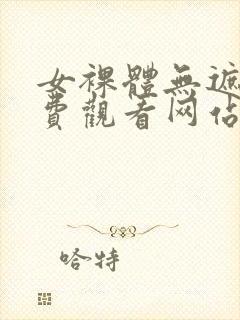 女裸體無遮
費觀看网佔
哈特